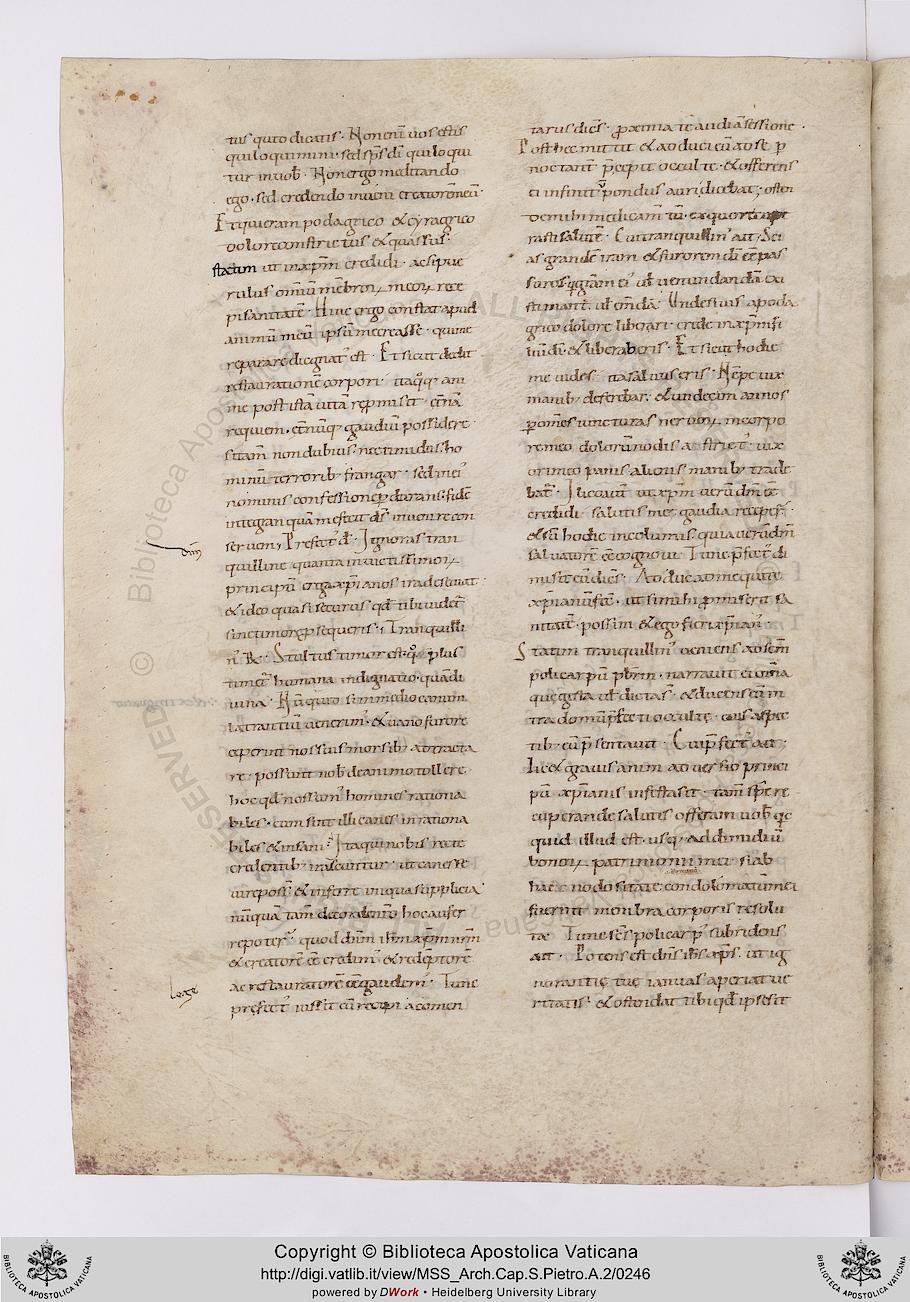 tus quiddicatis. Non enī uos estis
qui loquimini. sed sp̄s dī qui loqui
tur in uob. Non ergo meditando
ego. sed credendo inueni creatorē meū.
Et qui eram podagrico & cyragrico
dolore constrictus & quassus.
statim ut in xp̄m credidi. ac si pue
rulus omniū mēbroꝝ meoꝝ rece
pi sanitatē. Hinc ergo constat apud
animū meū ipsū me creasse. qui me
reparare dignat' est. Et sicut dedit
restaurationē corpori. itaq; ani
me post istā uitā repmisit. et̄nā
requiem. et̄nūq; gaudiū possidere
sitam non dubius. nec timidus. ho
minū terrorib; frangar. sed in ei'
nominis confessione pdurans. fidē
integram quā mestcit dn̄s inuenire con
seruem; Prefect' d'. Ignoras tran
quilline quanta inuictissimoꝝ
principū erga xp̄ianos ira deseuiat.
& ideo quasi securus qd' tibi uidet'
sine timore psequeris. Tranquilli
n' R̄. Stultus timor est. q̄ plus
timet' humana indignatio. quā di
uina. Nūquid si in medio canum
latrantiū uenerim'. & uano furore
ceperint nos suis morsib; adtracta
re. possunt nob̄ de animo tollere
hoc qd' nos sum' homines rationa
biles. cum sint illi canes inrationa
biles & insani? Ita qui nobis recte
credentib; irascuntur. ut canes se
uire poss̄ & inferre iniqua supplicia.
nūquā tam̄ de corde nr̄o hoc aufer
re poter'. quod dn̄m ihm̄ xp̄m nr̄m
& creatorē eē credim'. & redēptorē
ac restauratorē eē gaudem'. Tunc
prefect' iussit eū recipi a comen
tariensi
Lege
tarus dicēs. proxima tē audiā sessione.
Post hec mittit & adduci eū ad se p
noctem p̄cepit occulte. & offerens
ei infinitū pondus auri dicebat; osten
de mihi medicam̄ tuū ex quo recupe
rasti salutē. Cui tranquillin' ait. Sci
as grandē iram & furorem dī eē pas
suros. qi gr̄am ei' ut uenundandā exi
stimant. ut emdā. Unde si uis a poda
grico dolore liberari. crede in xp̄m fi
liū dī. & liberaberis. Et sicut hodie
me uides. ita saluus eris. Nēpe uix
manib; deferebar. & undecim annos
p omēs iuncturas neruoꝝ in corpo
re meo. doloꝝ nodis adstrict'. uix
ori meo panis alienis manib; trade
bat'. Ilico aūt ut xp̄m uerū dm̄ eē
credidi. salutis mee gaudia recepi.
& sū hodie incolumis. quia uerū dm̄
saluatorē eē cognoui. Tunc pfect' di
misit eū dicēs. Adduc ad me qui te
xp̄ianū fec̄. ut si mihi promiserit sa
nitatē. possim & ego fieri xp̄ian'.
Statim tranquillin' ueniens ad sc̄m
policarpū pbr̄m. narrauit ei omīa
que gesta ut dicta s̄. & ducens eū in
tra domū pfecti occulte. eius aspec
tib; eū p̄sentauit. Cui pfect' ait;
Licet grauis anim' aduersio princi
pū xp̄ianis infesta sit. tam̄ spe re
cuperande salutis offeram uob̄ qc
quid illud est. usq; ad dimidiū
bonoꝝ patrimonii mei. si ab
hac nodositate condolomatū mei
fuerint membra corporis resolu
ta. Tunc sc̄s policarp' subridens
ait. Potens est dn̄s ihs̄ xp̄s. ut ig
norantie tue ianuas aperiat ue
ritatis. & ostendat tibi qd' ipse sit
Copyright © Biblioteca Apostolica Vaticana
http://digi.vatlib.it/view/MSS_Arch.Cap.S.Pietro.A.2/0246
powered by DWork • Heidelberg University Library
BIBLIOTECA APOSTOLICA VATICANA
BIBLIOTECA APOSTOLICA VATICANA